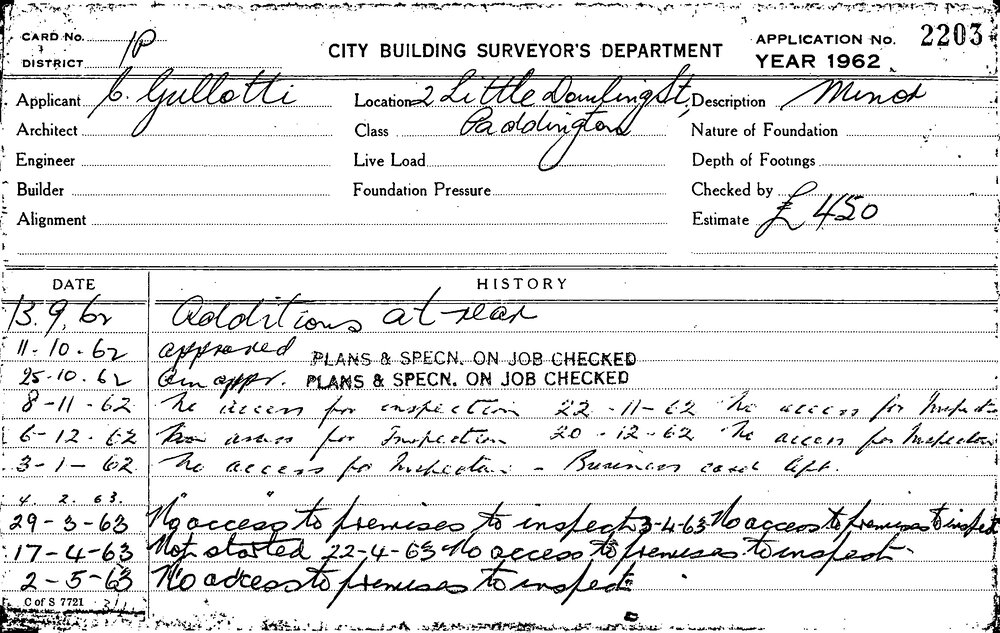 CARD No.
DISTRICT 1P
CITY BUILDING SURVEYOR'S DEPARTMENT
APPLICATION No. 2203
YEAR 1962
Applicant C. Gullotti Location 2 Little Dowling St, Description Minor
Architect Class Paddington Nature of Foundation
Engineer Live Load Depth of Footings
Builder Foundation Pressure Checked by
Alignment Estimate £450
DATE HISTORY
13.9.62 Additions at rear
11-10-62 approved PLANS & SPECN. ON JOB CHECKED
25-10-62 appr. PLANS & SPECN. ON JOB CHECKED
8-11-62 No access for inspection 22-11-62 No access for Inspect
6-12-62 No access for Inspection 20-12-62 No access for Inspection
3-1-62 No access for Inspection - Business card left.
4. 2. 63. " "
29-3-63 No access to premises to inspect 3-4-63 No access to premises to inspect
17-4-63 Not started 22-4-63 No access to premises to inspect
2-5-63 No access to premises to inspect
C of S 7721